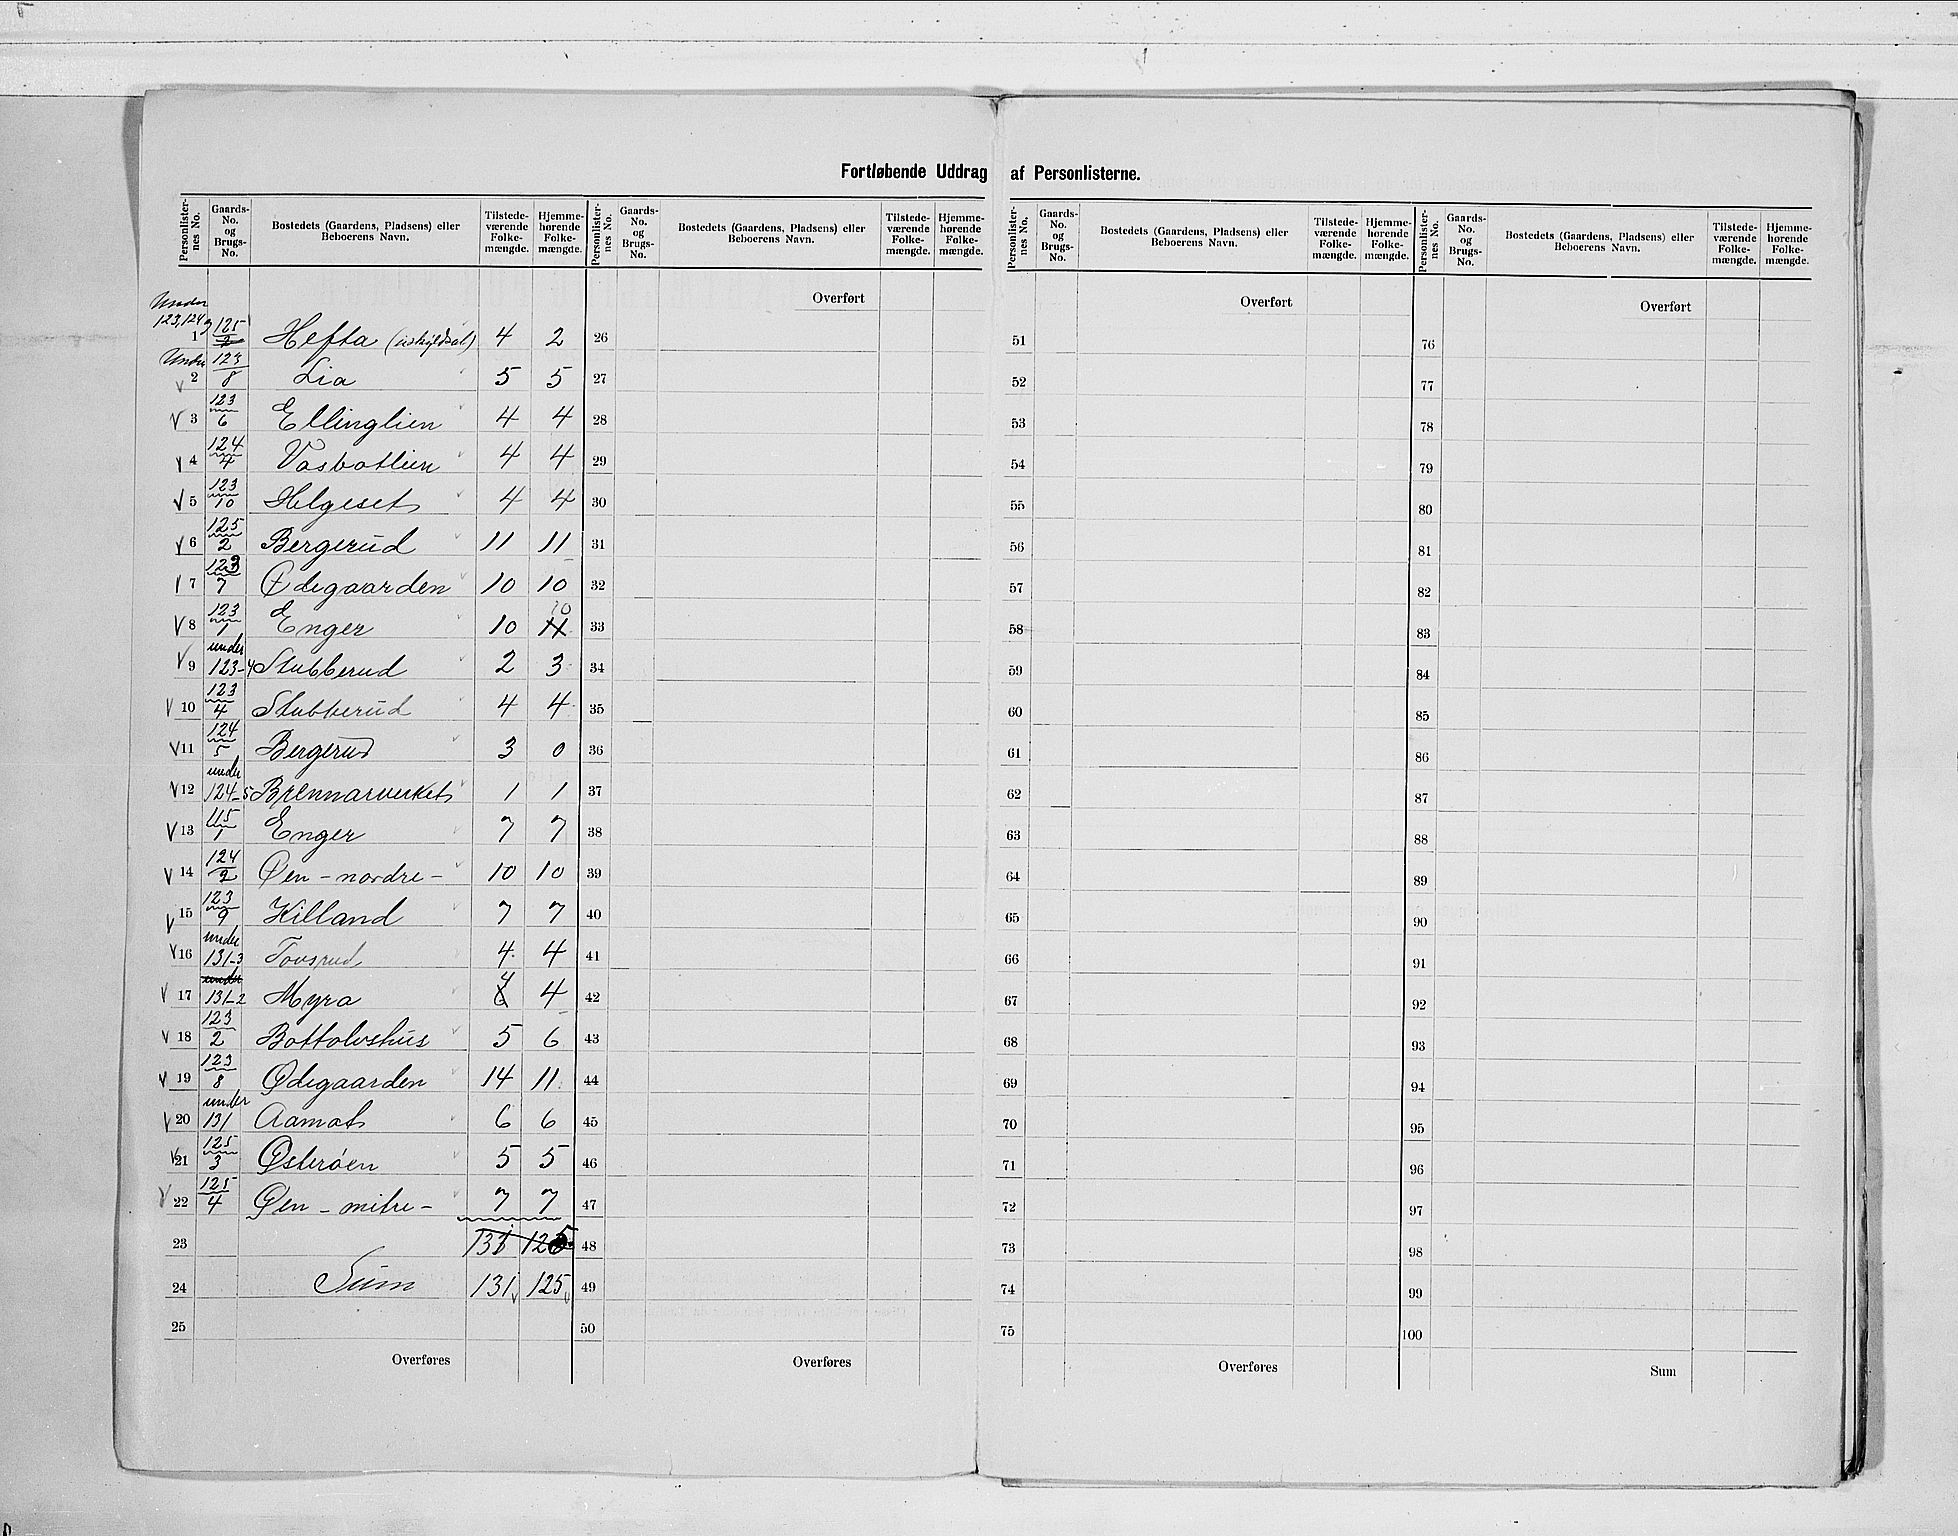 Fortløbende Uddrag af Personlisterne.
Personlister-nes No. Gaards-No. og Brugs-No. Bostedets (Gaardens, Pladsens) eller Beboerens Navn. Tilstede-værende Folke-mængde. Hjemme-hørende Folke-mængde.
Personlister-nes No. Gaards-No. og Brugs-No. Bostedets (Gaardens, Pladsens) eller Beboerens Navn. Tilstede-værende Folke-mængde. Hjemme-hørende Folke-mængde.
Personlister-nes No. Gaards-No. og Brugs-No. Bostedets (Gaardens, Pladsens) eller Beboerens Navn. Tilstede-værende Folke-mængde. Hjemme-hørende Folke-mængde.
Personlister-nes No. Gaards-No. og Brugs-No. Bostedets (Gaardens, Pladsens) eller Beboerens Navn. Tilstede-værende Folke-mængde. Hjemme-hørende Folke-mængde.
Under 123, 124 og
1 125/2 Hefta (uskyldsat) 4 2
Under
2 123/8 Lia 5 5
3 123/6 Ellinglien 4 4
4 124/4 Vasbotlien 4 4
5 123/10 Helgeset 4 4
6 125/2 Bergerud 11 11
7 123/7 Ødegaarden 10 10
8 123/1 Enger 10 11 10
9 under 123-4 Stubberud 2 3
10 123/4 Stubberud 4 4
11 124/5 Bergerud 3 0
12 under 124-5 Brennarverket 1 1
13 115/1 Enger 7 7
14 124/2 Øen - nordre - 10 10
15 123/9 Killand 7 7
16 under 131-3 Tovsrud 4 4
17 under 131-2 Myra 6 4 4
18 123/2 Bottolvshus 5 6
19 123/8 Ødegaarden 14 11
20 under 131 Aamot 6 6
21 125/3 Østerøen 5 5
22 125/4 Øen - mitre - 7 7
23 131 125
24 Sum 131 125
25
Overføres
Overført
26
27
28
29
30
31
32
33
34
35
36
37
38
39
40
41
42
43
44
45
46
47
48
49
50
Overføres
Overført
51
52
53
54
55
56
57
58
59
60
61
62
63
64
65
66
67
68
69
70
71
72
73
74
75
Overføres
Overført
76
77
78
79
80
81
82
83
84
85
86
87
88
89
90
91
92
93
94
95
96
97
98
99
100
Sum